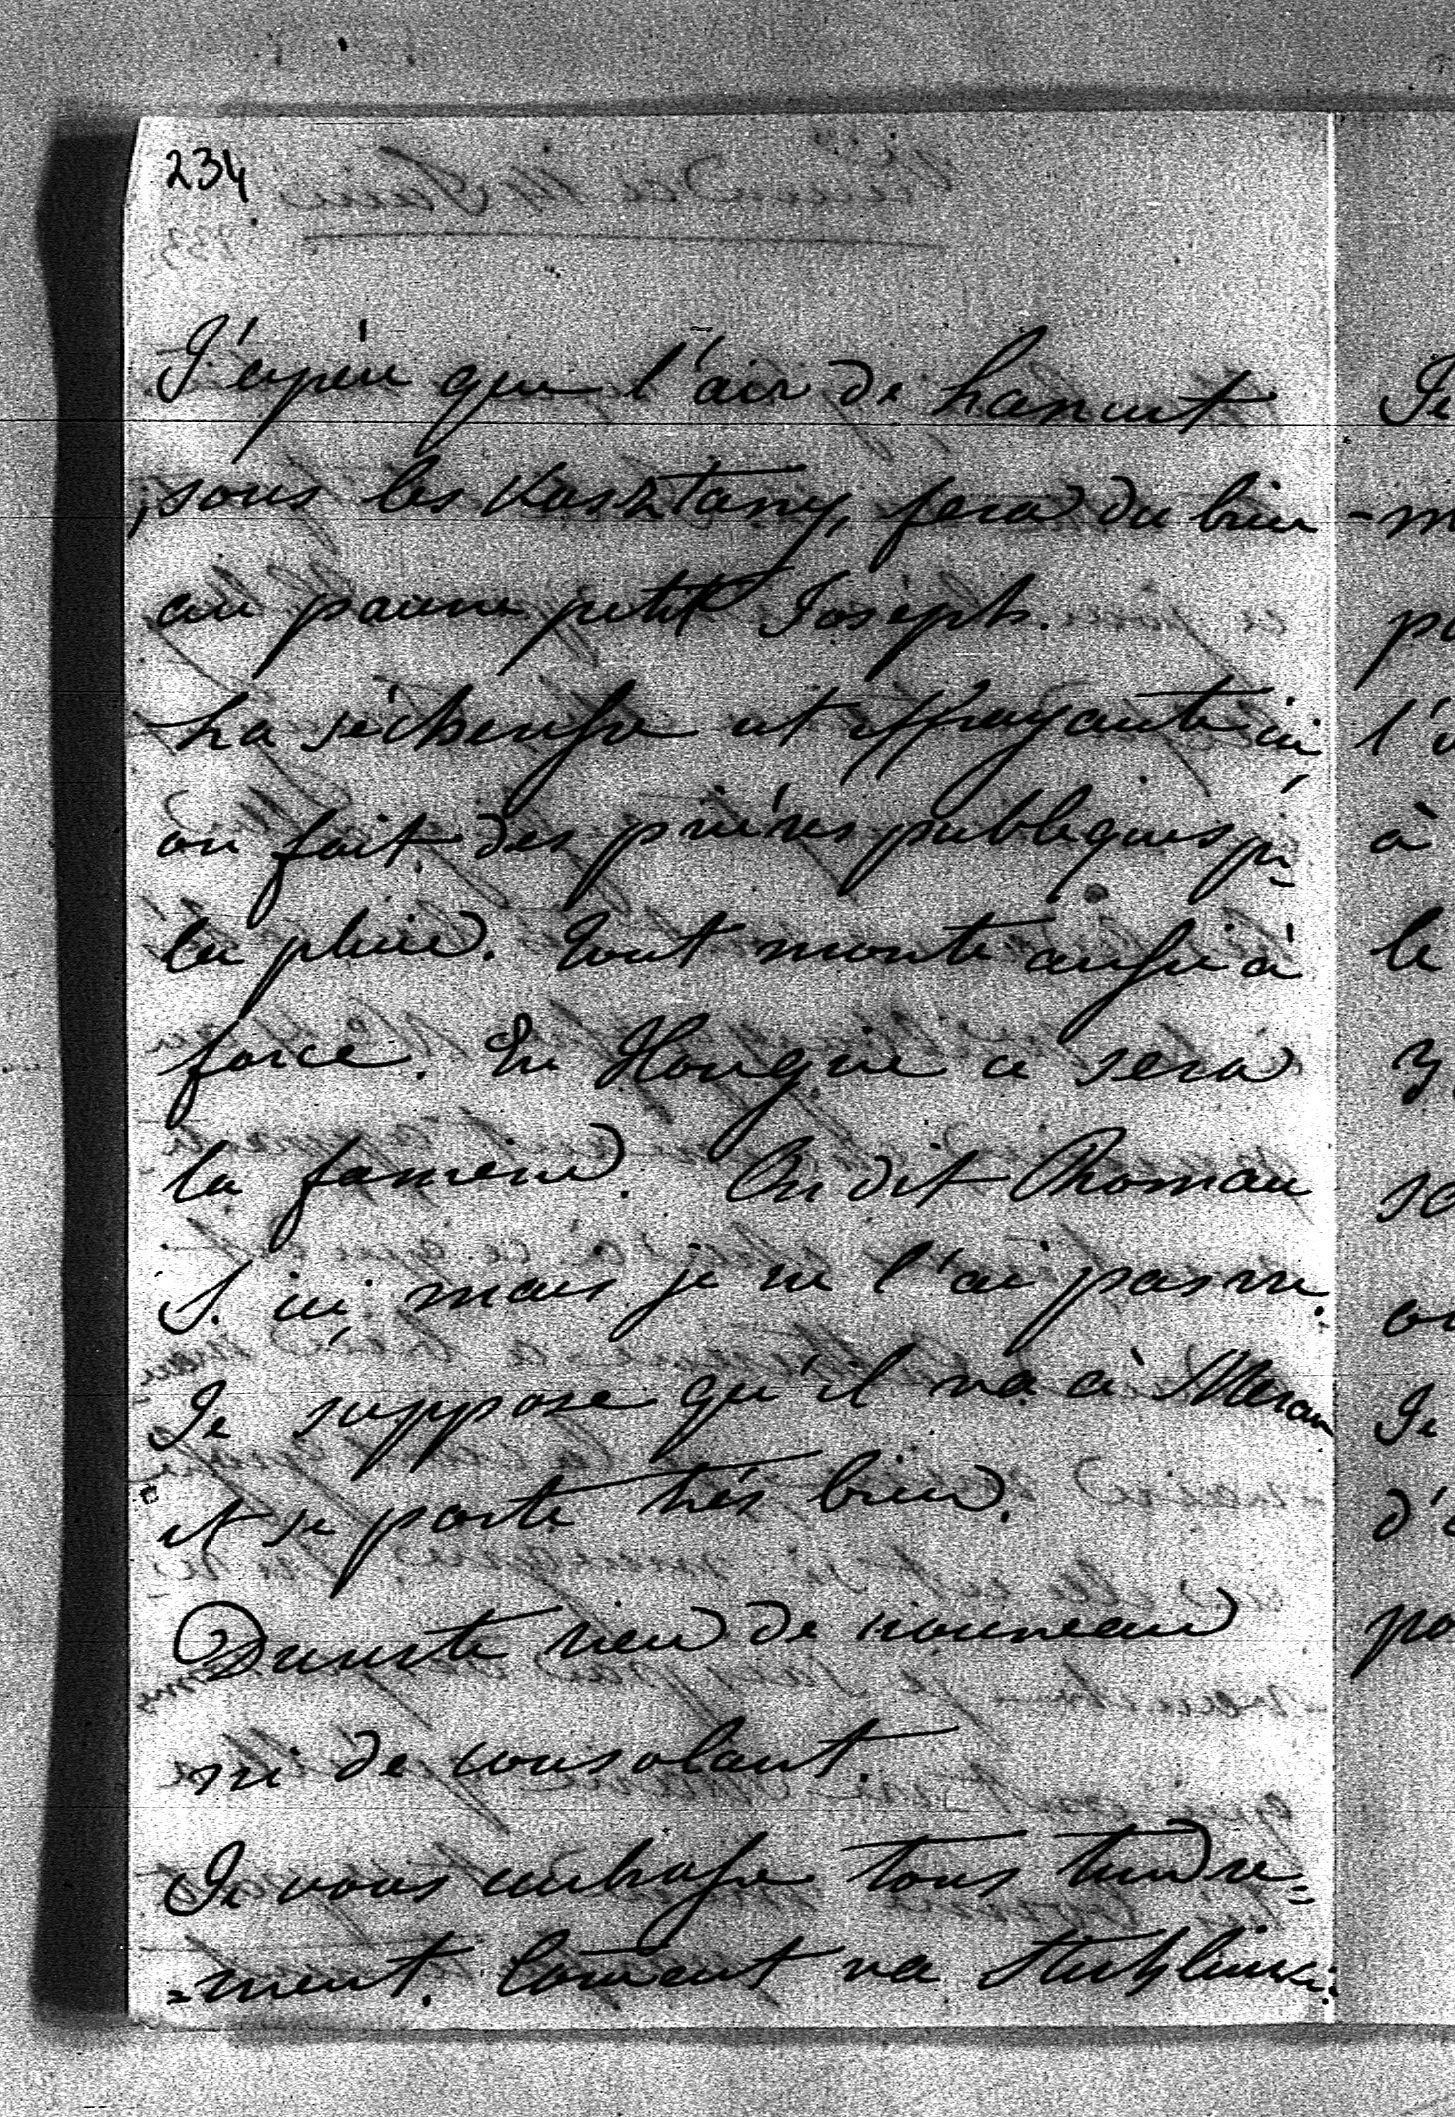 234
J'espère que l'air de Lancut
sous les Kasztany, fera du bien
au pauvre petit Joseph.
La sécheresse est effrayante ici
on fait des prières publiques pr
la pluie. Tout monte aussi à
force. En Hongrie ce sera
la famine. On dit Roman
S. ici mais je ne l'ai pas vu.
Je suppose qu'il va à Meran
et se porte très bien.
Du reste rien de nouveau
ni de consolant.
Je vous embrasse tous tendre=
=ment. Coment va